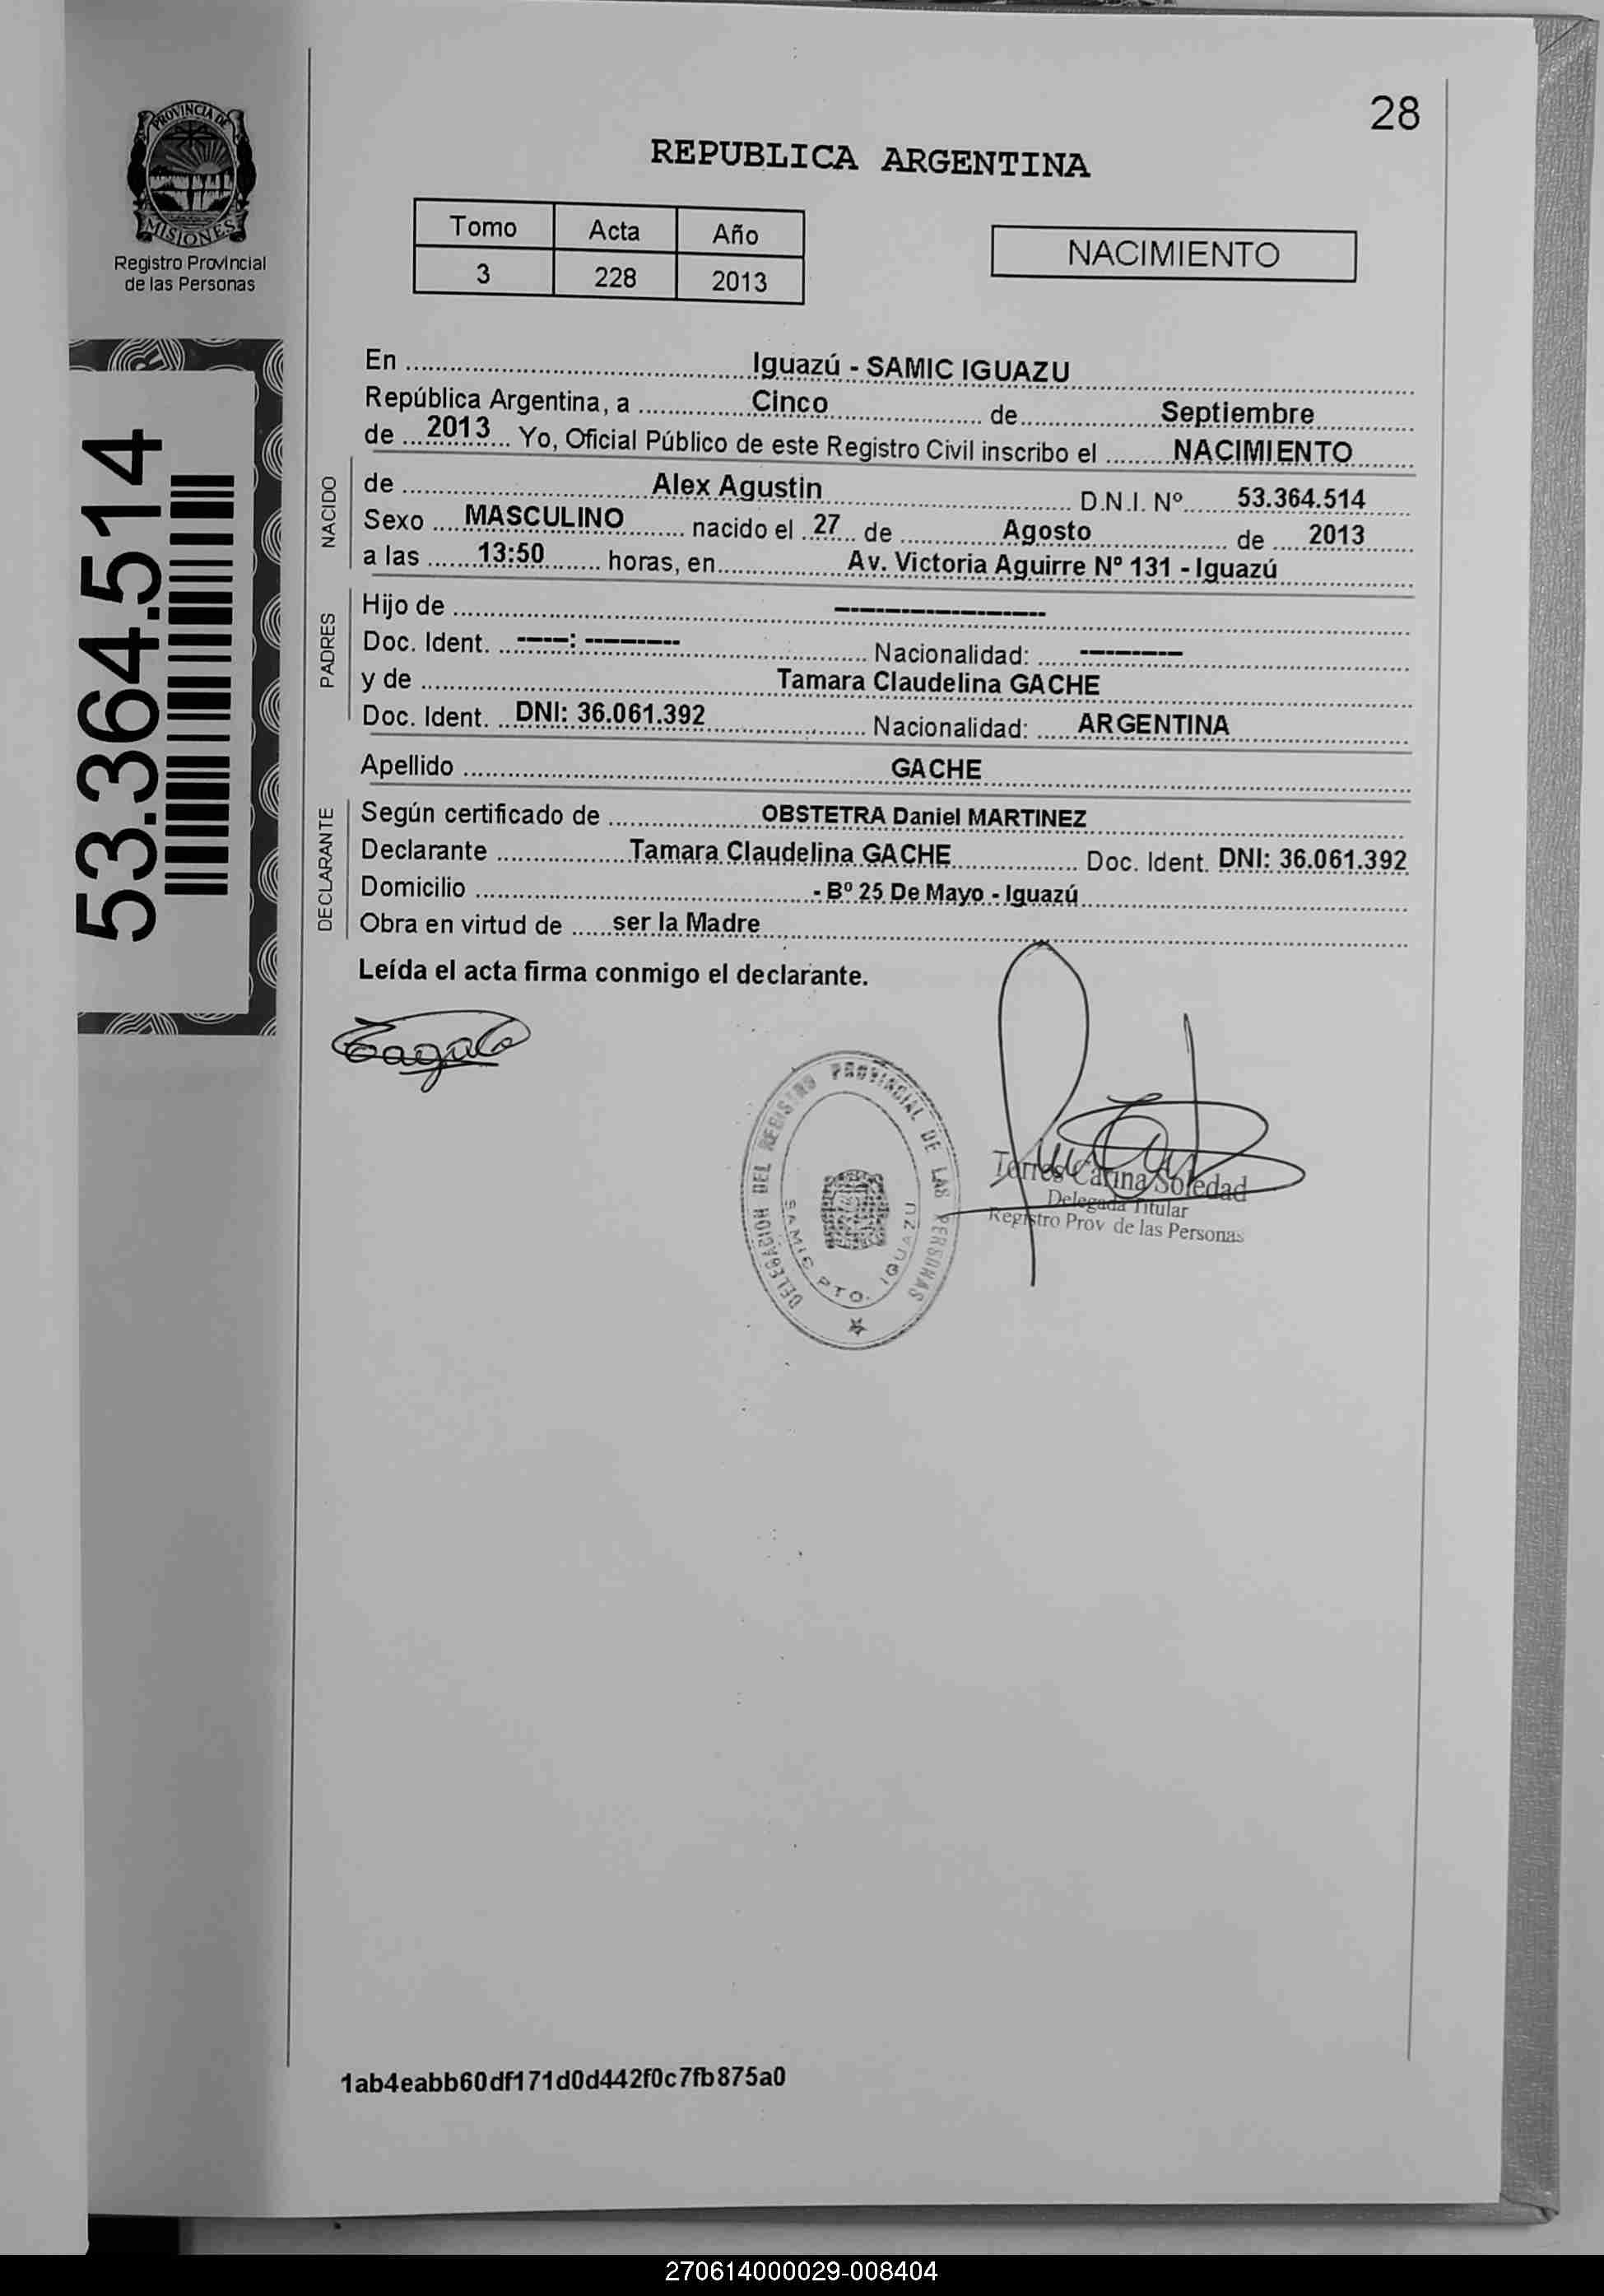 28
PROVINCIA DE
MISIONES
Registro Provincial
de las Personas
REPUBLICA ARGENTINA
Tomo Acta Año
3 228 2013
NACIMIENTO
53.364.514
En Iguazú - SAMIC IGUAZU
República Argentina, a Cinco de Septiembre
de 2013 Yo, Oficial Público de este Registro Civil inscribo el NACIMIENTO
NACIDO
de Alex Agustin D.N.I. Nº 53.364.514
Sexo MASCULINO nacido el 27 de Agosto de 2013
a las 13:50 horas, en Av. Victoria Aguirre Nº 131 - Iguazú
PADRES
Hijo de ------------------
Doc. Ident. -----: --------- Nacionalidad: ---------
y de Tamara Claudelina GACHE
Doc. Ident. DNI: 36.061.392 Nacionalidad: ARGENTINA
Apellido GACHE
DECLARANTE
Según certificado de OBSTETRA Daniel MARTINEZ
Declarante Tamara Claudelina GACHE Doc. Ident. DNI: 36.061.392
Domicilio - Bº 25 De Mayo - Iguazú
Obra en virtud de ser la Madre
Leída el acta firma conmigo el declarante.
DELEGACION DEL REGISTRO PROVINCIAL DE LAS PERSONAS
SAMIC PTO. IGUAZU
Torres Carina Soledad
Delegada Titular
Registro Prov de las Personas
1ab4eabb60df171d0d442f0c7fb875a0
270614000029-008404